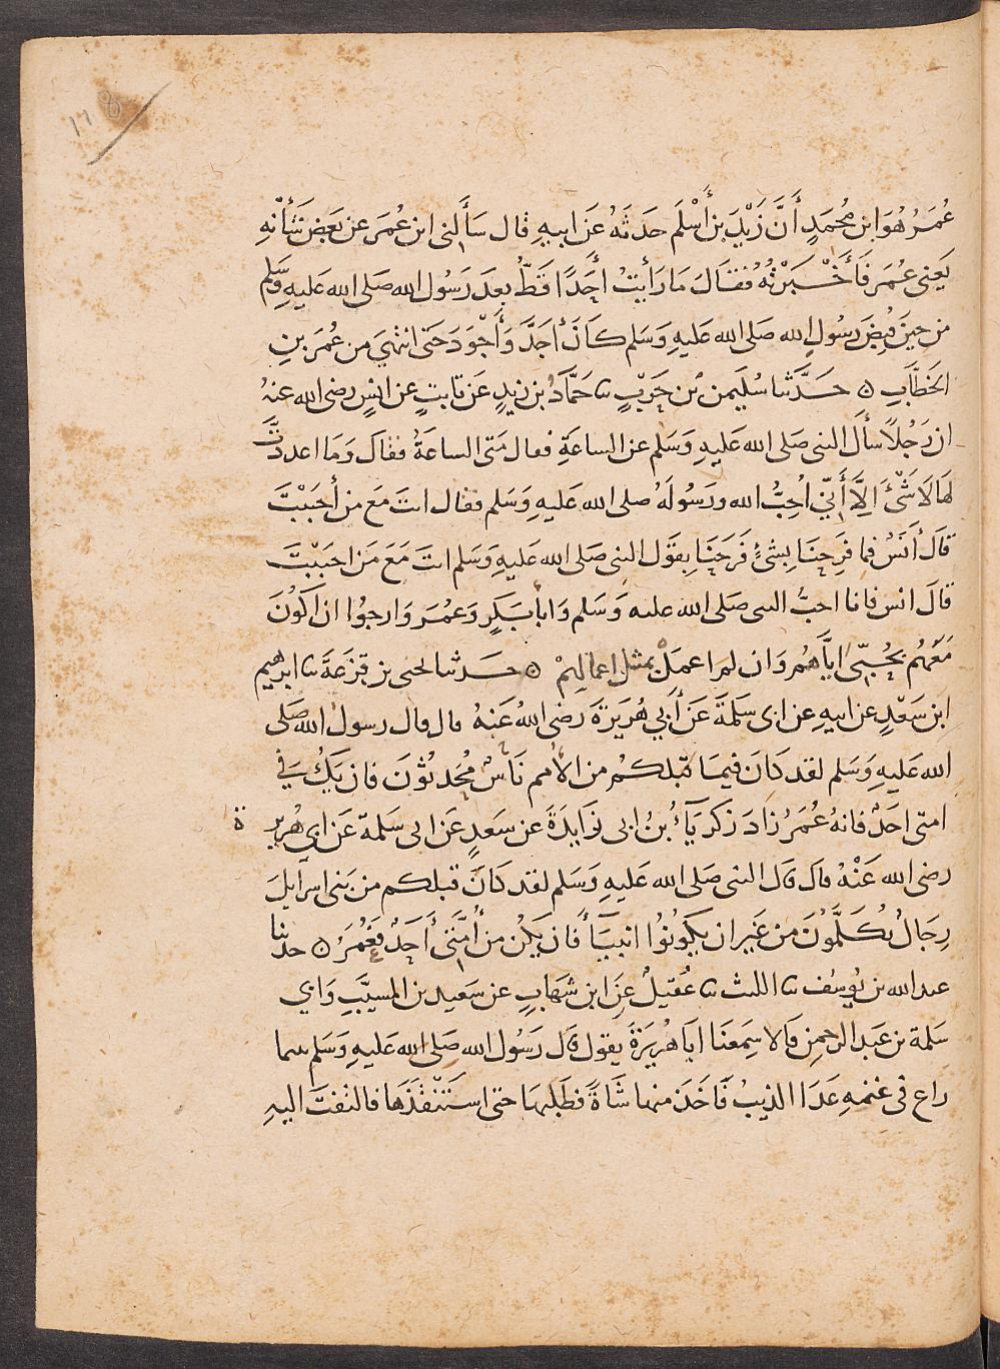 عُمَرُ هُوَ ابن مُحمَدٍ أَنَّ زَيْدَ بن أَسْلَم حَدثَهُ عَن ابيهِ قال سَأَلنى ابن عُمَرَ عن بَعض شَأنِهِ
يَعنى عُمَرَ فَأَخْبَرْتُهُ فقالَ مَا رَأيتُ أحَدًا قَطُّ بعدَ رَسُولِ الله صَلى الله عَليهِ وسَلم
من حينَ قبِضَ رسُولِ الله صَلى الله عَليهِ وَسَلم كانَ أجَدَّ وَأَجْوَدَ حَتى انتهَي من عُمَرَ بنِ
الخَطَّابِ ه حَدَّثنا سُليمن بن حَرْبٍ نا حَمَّادُ بن زيدٍ عَن ثابتٍ عن انسٍ رضى الله عنهُ
ان رَجُلاً سأَلَ النبى صَلى الله عَليهِ وَسَلم عن الساعَةِ فقال مَتى الساعَةُ فقالَ وَمَا اعددتَّ
لهَا لَا شَىْءَ اِلَّا أَنِّي أُحِبُّ الله ورَسُولَهُ صلى الله عَليهِ وَسَلم فقال انتَ مَعَ من أَحبَبْتَ
قالَ أَنَسٌ فما فرِحنَا بشىْءٍ فَرَحَنَا بِقَولِ النبى صَلى الله عَليهِ وَسَلم انتَ مَعَ مَن احبَبْتَ
قالَ انس فانا احبُّ النبى صَلى الله عليه وَسَلم وَابا بَكرٍ وَعُمَرَ وَارجُوا ان اكُونَ
مَعَهُم بحُبِّى ايَّاهُم وَان لم اعمَلْ بمثل اعمالهِمْ ه حَدثنا يحيى بن قزعَةَ نا ابرهيم
ابن سَعْدٍ عن ابيهِ عن ابى سَلمَةَ عَن أَبي هُرَيرَةَ رضى اللهُ عَنهُ قال قال رسول الله صَلى
الله عَليهِ وَسَلم لقد كانَ فيمَا قبلكُم من الأمم نَاسٌ مُحَدثُونَ فان يَكُ في
امتى احَدٌ فانهُ عُمَرُ زادَ زَكَريَآءُ بنُ ابى زَايدَةَ عن سَعدٍ عَن ابى سَلمة عَن ابى هُريرة
رضى الله عَنْهُ قال قال النبى صَلى الله عَليهِ وَسَلم لقد كانَ قبلكم من بَنى اسرايلَ
رِجَالٌ يُكَلَّمُونَ من غَير ان يكُونُوُا انبيَآءً فان يَكُن من أُمَّتى أَحَدٌ فَعُمَرُ ه حدثنا
عبد الله بن يُوسُف نا الليث نا عُقيلٌ عَن ابن شهَابٍ عن سَعيد بن المسَيَّبِ وَابي
سَلمة بن عَبد الرحمن قالا سَمِعنَا ابَا هُرَيرَةَ يقول قال رَسُول الله صَلى الله عَليهِ وَسَلم بينما
راعٍ فى غنمهِ عَدَا الذيبُ فَأخَذ منها شَاةً فطَلبهَا حتى استَنْقَذَهَا فالتَفتَ اليهِ